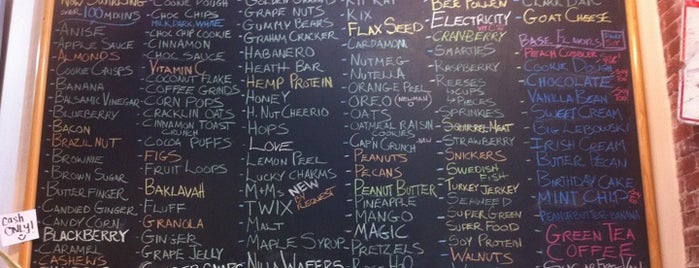 NOW SWIRLING
OVER 100 MIXINS
-ANISE
-APPLE SAUCE
-ALMONDS
-COOKIE CRISPS
-BANANA
-BALSAMIC VINEGAR
-BLUEBERRY
-BACON
-BRAZIL NUT
-BROWNIE
-BROWN SUGAR
-BUTTERFINGER
-CANDIED GINGER
-CANDY CORN
-BLACKBERRY
-CARAMEL
-CASHEWS
CASH ONLY!
-COOKIE DOUGH
-CHOC CHIPS
MILK, DARK, WHITE
-CHOC CHIP COOKIE
-CINNAMON
-CHOC SAUCE
-VITAMIN C
-COCONUT FLAKE
-COFFEE GRINDS
-CORN POPS
-CRACKLIN OATS
-CINNAMON TOAST
CRUNCH
-COCOA PUFFS
-FIGS
-FRUIT LOOPS
-BAKLAVAH
-FLUFF
-GRANOLA
-GINGER
-GRAPE JELLY
-GOLDEN GRAHAM
-GRAPE NUTS
-GUMMY BEARS
-GRAHAM CRACKER
-HABANERO
-HEATH BAR
-HEMP PROTEIN
-HONEY
-H. NUT CHEERIO
-HOPS
-LOVE
-LEMON PEEL
-LUCKY CHARMS
-M+M'S
NEW BY REQUEST
-TWIX
-MALT
-MAPLE SYRUP
-NILLA WAFERS
-KIT KAT
-KIX
-FLAX SEED
-CARDAMOM
-NUTMEG
-NUTELLA
-ORANGE PEEL
-OREO (NEWMAN)
-OATS
-OATMEAL RAISIN
COOKIES
-CAP'N CRUNCH NEW
-PEANUTS
-PECANS
-PEANUT BUTTER
-PINEAPPLE
-MANGO
-MAGIC
-PRETZELS
-BEE POLLEN
-ELECTRICITY
-CRANBERRY
-SMARTIES
-RASPBERRY
-REESES
-CUPS
-PIECES
-SPRINKLES
-SQUIRREL MEAT
-STRAWBERRY
-SNICKERS
-SWEDISH
FISH
-TURKEY JERKEY
-SEAWEED
-SUPER GREEN
-SUPER FOOD
-SOY PROTEIN
-WALNUTS
-CLARK BAR
-GOAT CHEESE
BASE FLAVORS
-PEACH COBBLER
-COOKIE DOUGH
-CHOCOLATE
-VANILLA BEAN
-SWEET CREAM
-BIG LEBOWSKI
-IRISH CREAM
-BUTTER PECAN
-BIRTHDAY CAKE
-MINT CHIPS
-PEANUT BUTTER-BANANA
-GREEN TEA
-COFFEE